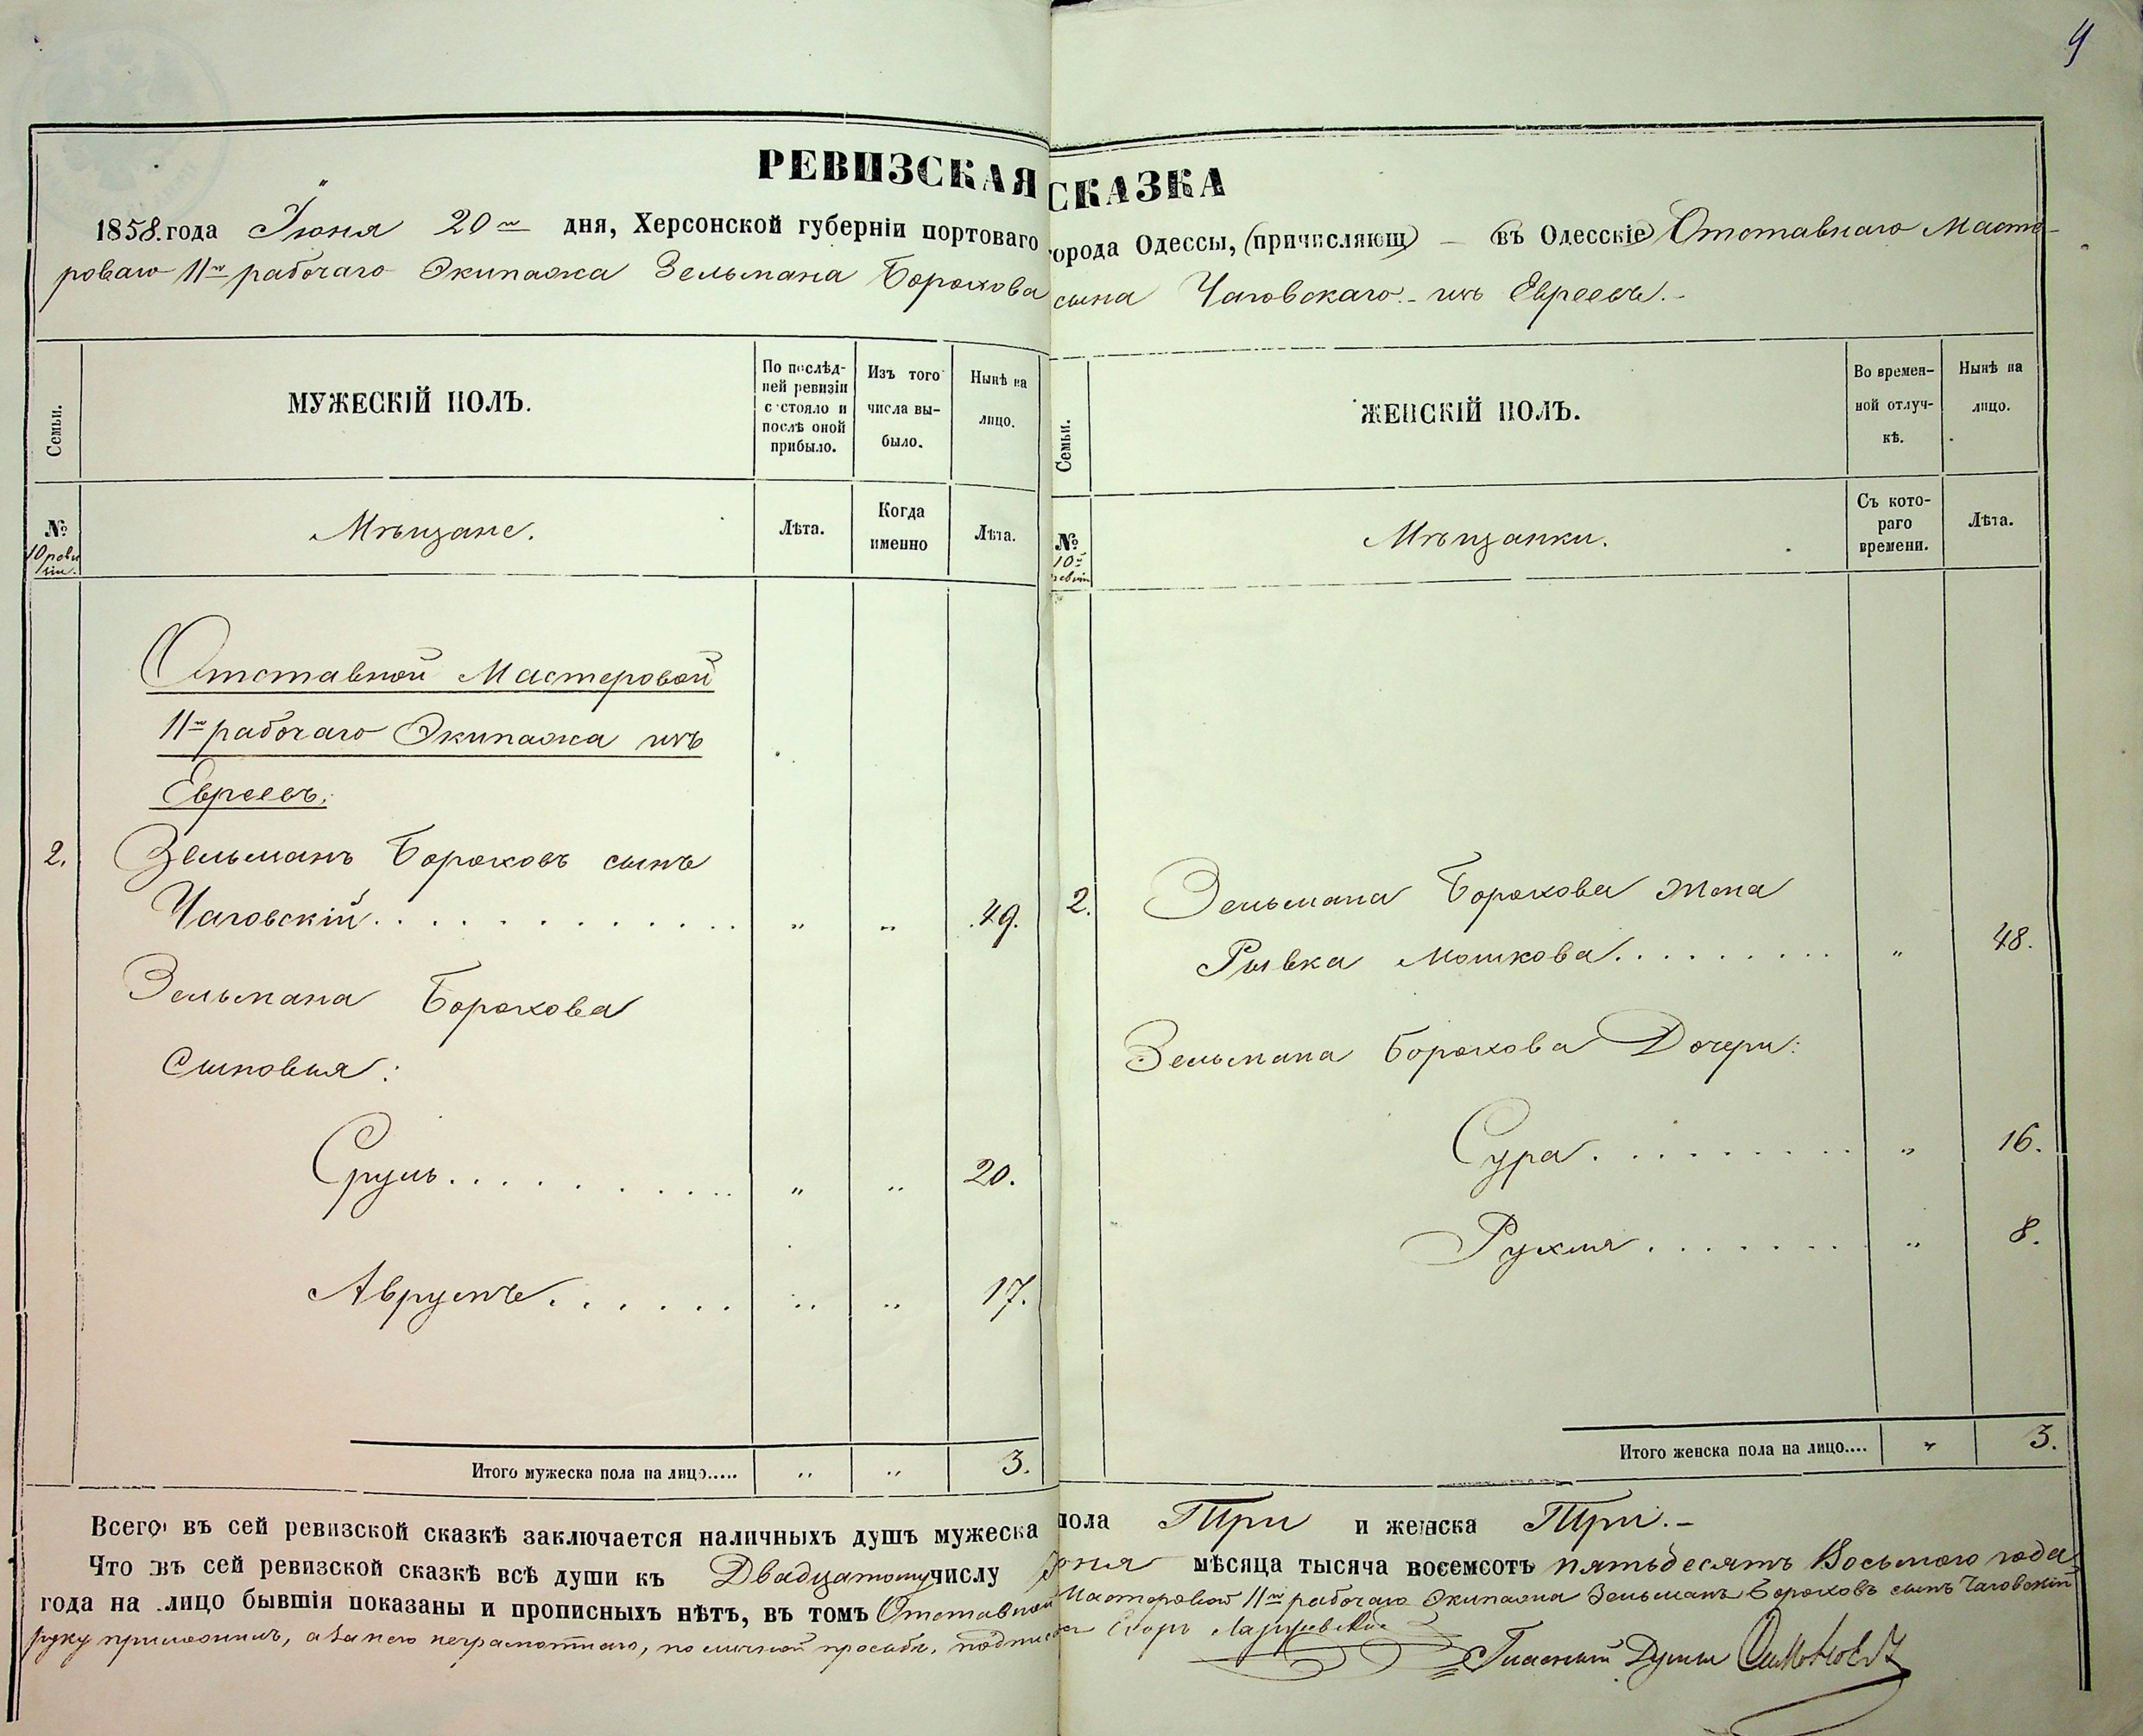 9
РЕВИЗСКАЯ СКАЗКА
1858. года Іюня 20го дня, Херсонской губерніи портоваго города Одессы, (причисляющ) — (въ Одесскіе) Отставнаго Масте-
роваго 11го рабочаго Экипажа Зельмана Борохова сына Чаговскаго. - изъ Евреевъ. -
Семьи.
МУЖЕСКІЙ ПОЛЪ.
По послѣд-
ней ревизіи
состояло и
послѣ оной
прибыло.
Изъ того
числа вы-
было.
Нынѣ на
лицо.
№
10 реви
зіи.
Мѣщане.
Лѣта.
Когда
именно
Лѣта.
Отставной Мастеровой
11го рабочаго Экипажа изъ
Евреевъ.
2. Зельманъ Бороховъ сынъ
Чаговскій. . . . . . . . . . . „ „ 49.
Зельмана Борохова
Сыновья:
Сруль. . . . . . . . . „ „ 20.
Аврумъ. . . . . . „ „ 17.
Итого мужеска пола на лицо..... „ „ 3.
Семьи.
ЖЕНСКІЙ ПОЛЪ.
Во времен-
ной отлуч-
кѣ.
Нынѣ на
лицо.
№
10й
ревизіи
Мѣщанки.
Съ кото-
раго
времени.
Лѣта.
2. Зельмана Борохова жена
Рывка Мошкова. . . . . . . . . „ 48.
Зельмана Борохова Дочери:
Сура. . . . . . . . . „ 16.
Рухля. . . . . . . „ 8.
Итого женска пола на лицо.... „ 3.
Всего въ сей ревизской сказкѣ заключается наличныхъ душъ мужеска пола Три и женска Три. -
Что въ сей ревизской сказкѣ всѣ души къ Двадцатому числу Іюня мѣсяца тысяча восемсотъ пятьдесятъ Восьмого года
года на лицо бывшія показаны и прописныхъ нѣтъ, въ томъ Отставной Мастеровой 11го рабочаго Экипажа Зельманъ Бороховъ сынъ Чаговскій
руку приложилъ, а за него неграмотнаго, по личной просьбѣ, подписался Егоръ
Гласный Думы